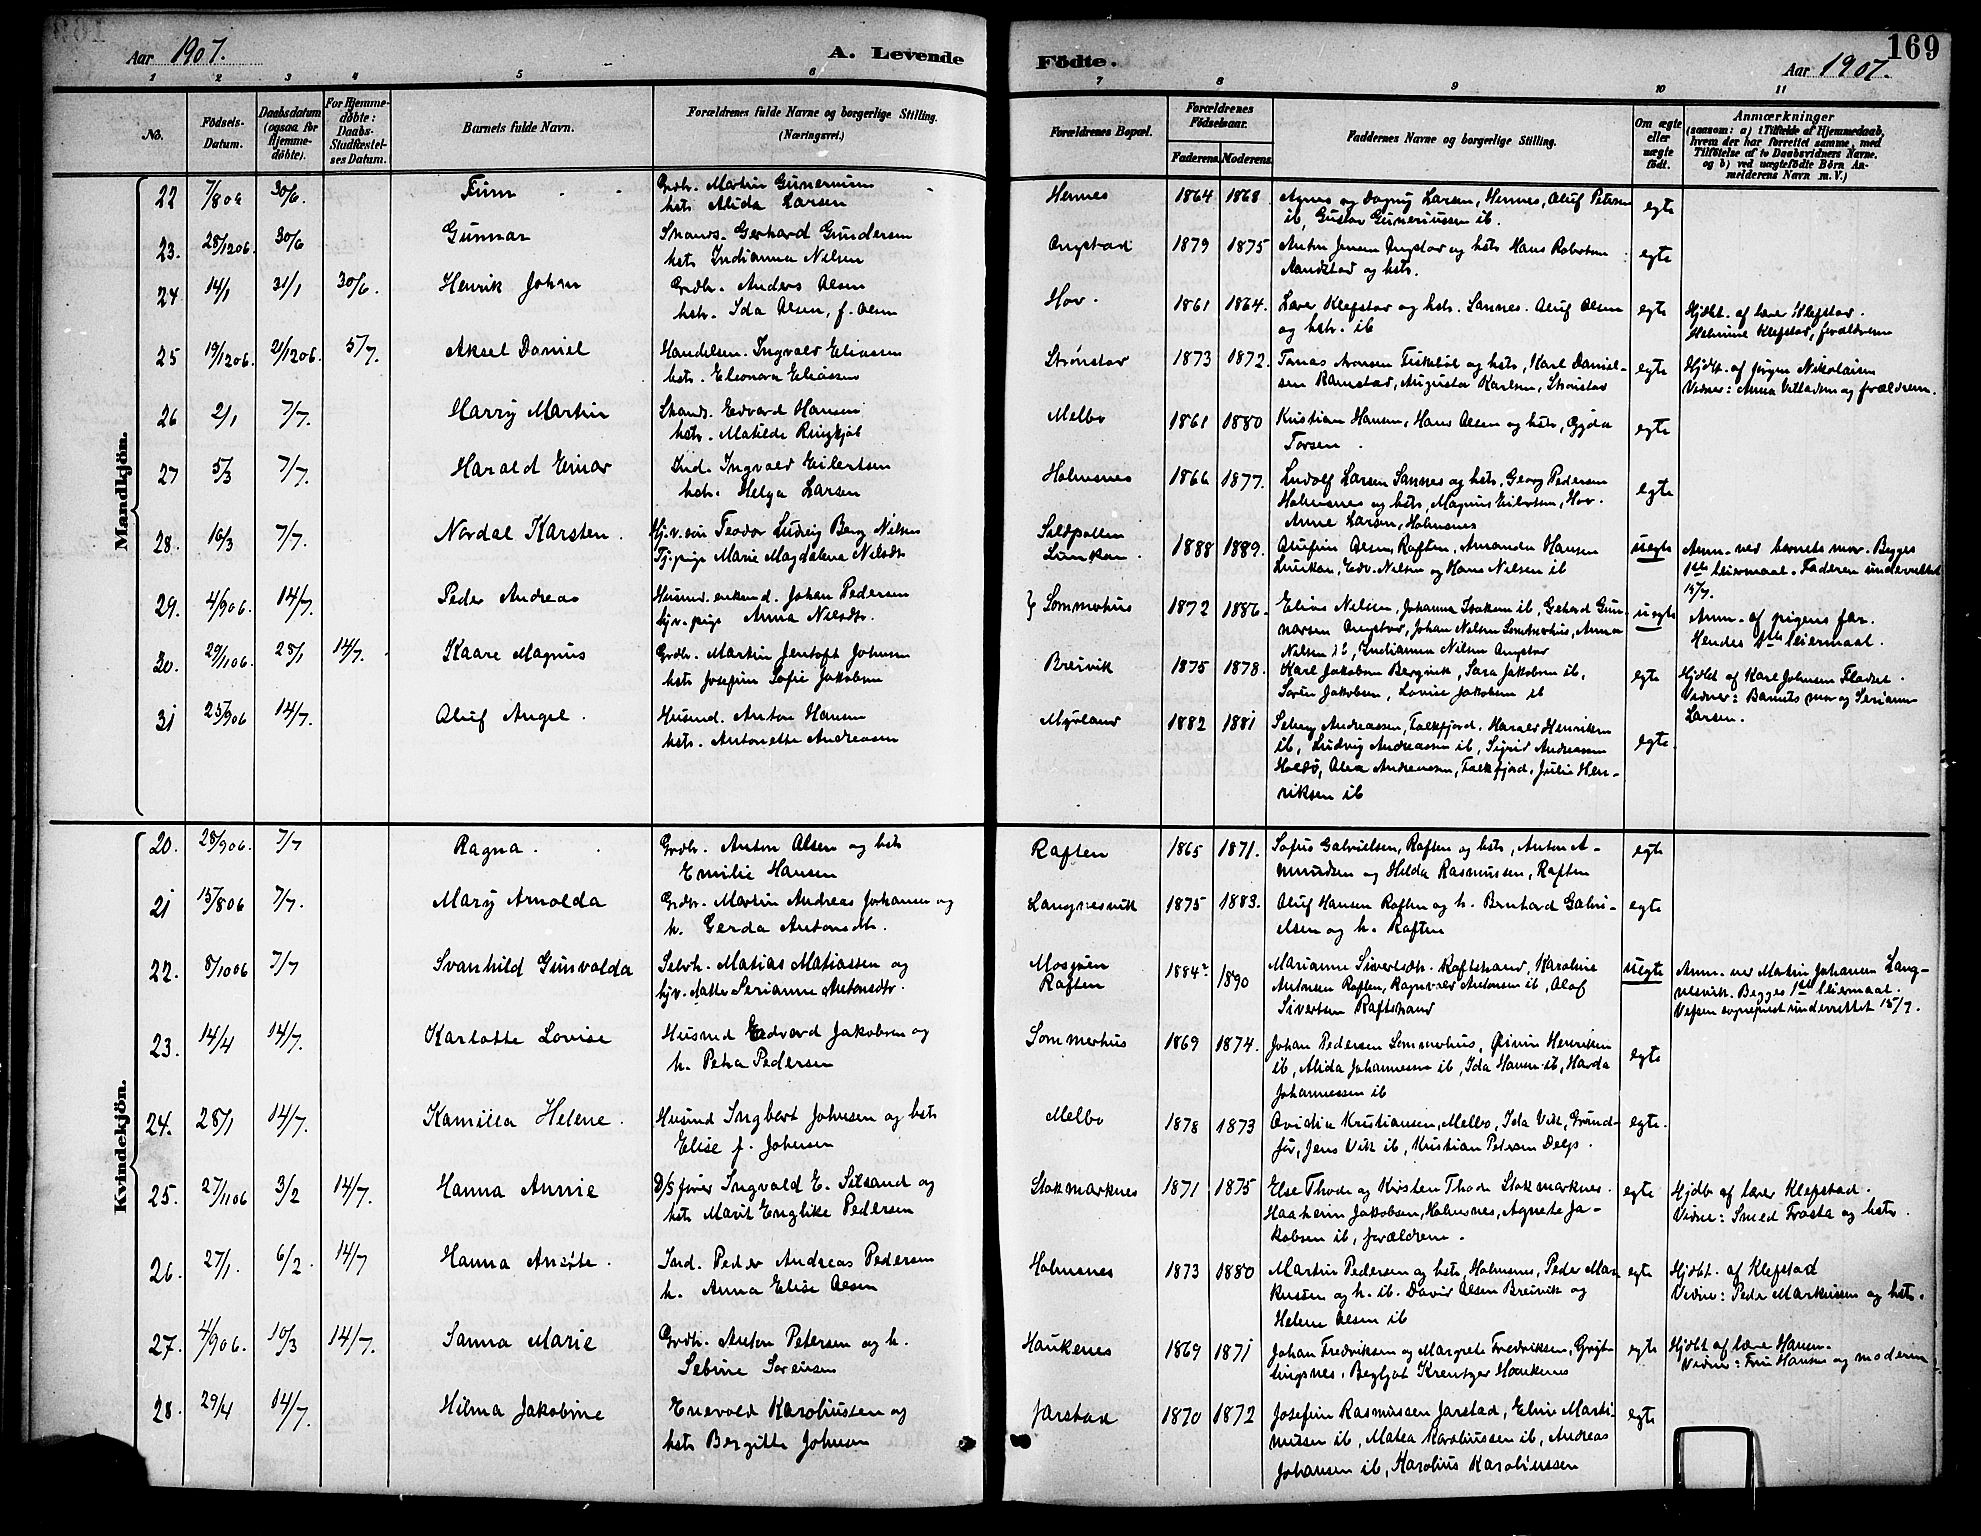 169
Aar 1907.
A. Levende Fødte.
Aar 1907.
1 2 3 4 5 6 7 8 9 10 11
No.
Fødsels-
Datum.
Daabsdatum
(ogsaa for
Hjemme-
døbte).
For Hjemme-
døbte:
Daabs-
Stadfæstel-
ses Datum.
Barnets fulde Navn.
Forældrenes fulde Navne og borgerlige Stilling.
(Næringsvei.)
Forældrenes Bopæl.
Forældrenes
Fødselsaar.
Faderens. Moderens.
Faddernes Navne og borgerlige Stilling.
Om ægte
eller
uægte
født.
Anmærkninger
(saasom: a) i Tilfælde af Hjemmedaab,
hvem der har forrettet samme, med
Tilføielse af to Daabsvidners Navne,
og b) ved uægtefødte Børn An-
melderens Navn m. V.)
Mandkjön.
22 7/8 06 30/6 Finn Grdbr. Martin Gunerius
hstr Alida Larsen
Hennes 1864 1868 Agnes og Dagny Larsen, Hennes, Oluf Petersen
ib, Gustav Guneriussen ib. egte
23. 28/12 06. 30/6 Gunnar Strands. Gerhard Gundersen
hstr Indianna Nilsen
Ongstad 1879 1875 Anton Jensen Ongstad og hstr Hans Robertsen
Sandstad og hstr. egte
24 14/1 31/1 30/6. Henrik Johan Grdbr. Anders Olsen
hstr. Ida Olsen, f. Olsen
Hov. 1861 1864. Lærer Klefstad og hstr. Sannes. Oluf Olsen
og hstr. ib egte Hjdbt. af lærer Klefstad.
Helmine Klefstad, forældrene
25 19/12 06. 21/12 06. 5/7. Aksel Daniel Handelsm. Ingvald Eliassen
hstr. Eleonora Eliassen
Strønstad 1873 1872. Tomas Aronsen Fiskebøl og hstr, Karl Daniel-
sen Ramstad, Augusta Karlsen, Strønstad egte Hjdbt. af Jørgen Nikolaisen
Vidner: Anna Villadsen og forældrene.
26 2/1 7/7. Harry Martin Strands. Edvard Hansen
hstr. Matilde Ringkjøb
Melbo 1861 1880 Kristian Hansen, Hans Olsen og hstr, Gyda
Torsen. egte
27 5/3 7/7. Harald Einar Ind. Ingvald Eilertsen
hstr. Helga Larsen
Holmsnes 1866 1877. Ludolf Larsen Sannes og hstr, Georg Pedersen
Holmsnes og hstr, Magnus Eilertsen, Hov.
Anne Larsen, Holmsnes egte
28. 16/3 7/7. Nordal Karsten. Hj.v. søn Teodor Ludvig Berg Nilsen
Tj.pige Marie Magdalena Nilsdtr
Sildpollen
Lunkan. 1888 1889. Olufine Olsen, Raften, Amanda Hansen
Lunkan, Edv. Nilsen og Hans Nilsen ib uegte Anm. ved barnets mor. Begges
1ste leiermaal. Faderen underrettet
15/7.
29. 4/9 06. 14/7. Peder Andreas Husmd. enkemd. Johan Pedersen
hjv. pige Anna Nilsdtr.
Sommerhus 1872 1886. Elias Nilsen, Johanna Isaksen ib, Gehard Gun-
narsen Ongstad, Johan Nilsen Sommerhus, Anna
Nilsen ib, Indianna Nilsen Ongstad uegte Anm. af pigens far.
Hendes 1ste leiermaal.
30. 29/11 06. 25/1 14/7. Kaare Magnus Grdbr. Martin Jentoft Johnsen
hstr Josefine Sofie Jakobsen
Breivik 1875 1878. Karl Jakobsen Bergvik, Sara Jakobsen ib,
Søren Jakobsen, Lovise Jakobsen ib egte Hjdbt af Karl Johnsen Fladset.
Vidner: Barnets mor og Serianne
Larsen.
31 25/9 06 14/7. Oluf Angel. Husmd. Anton Hansen
hstr. Antonette Andreassen
Myrland 1882 1881 Seberg Andreassen, Falkfjord. Harald Henriksen
ib, Ludvig Andreassen ib, Sigrid Andreassen
Holdø, Olea Andreassen, Falkfjord, Julie Hen-
riksen ib egte
Kvindekjön.
20. 28/9 06. 7/7 Ragna. Grdbr. Anton Olsen og hstr
Emilie Hansen
Raften 1865 1871. Sofus Gabrielsen, Raften og hstr, Anton A-
mundsen og Hilda Rasmussen, Raften egte
21 15/8 06 7/7. Mary Arnolda Grdbr. Martin Andreas Johansen og
h. Gerda Antonsdtr.
Langnesvik 1875 1883. Oluf Hansen Raften og h. Bernhard Gabri-
elsen og h. Raften egte
22. 8/10 06 7/7 Svanhild Gunvalda Selvh. Matias Matiassen og
hjv. datter Serianne Antonsdtr.
Mosjøen
Raften 1884? 1890 Marianne Sivertsdtr. Raftstrand, Karoline
Antonsen Raften, Ragnvald Antonsen ib, Olaf
Sivertsen Raftstrand uegte Anm. ved Martin Johansen Lang-
nesvik. Begges 1ste leiermaal.
Vefsen sogneprest underrettet 15/7.
23. 14/4 14/7. Karlotte Lovise Husmd Edvard Jakobsen og
h. Petra Pedersen
Sommerhus 1869 1874. Johan Pedersen Sommerhus, Øivin Henriksen
ib, Alida Johannessen ib, Ida Hansen ib, Harda
Johannessen ib egte
24. 28/1 14/7. Kamilla Helene. Husmd Ingbert Johnsen og hstr
Elise f. Johnsen
Melbo 1878 1873 Ovidia Kristiansen, Melbo, Ida Vik, Grund-
før, Jens Vik ib, Kristian Petersen Delp. egte.
25. 27/11 06 3/2 14/7. Hanna Annie D/S fører Ingvald E. Silsand og
hstr Marit Englike Pedersen
Stokmarknes 1871 1875 Else Thode og Kristen Thode Stokmarknes.
Haakerin Jakobsen, Holmsnes, Agnete Ja-
kobsen ib, forældrene. egte Hjdb af lærer Klefstad.
Vidne: Smed Frosta og hstr.
26. 27/1. 6/2. 14/7 Hanna Ansøte. Ind. Peder Andreas Pedersen
h. Anna Elise Olsen
Holmsnes 1873 1880 Martin Pedersen og hstr, Holmsnes, Peder Mar-
kussen og h. ib. David Olsen Breivik og
Helene Olsen ib egte Hjdbt. af Klefstad
Vidne: Peder Markussen og hstr.
27. 4/9 06. 10/3 14/7. Sanna Marie Grdbr. Anton Petersen og h.
Sebine Sørensen
Haukenes 1869 1871 Johan Fredriksen og Margrete Fredriksen, Grøt-
tingsnes. Bergljot Krentzer Haukenes egte Hjdbt af lærer Hansen.
Vidne: Fru Hansen og moderen
28. 29/4 14/7. Hilma Jakobine Enevold Karoliussen og
hstr Bergitte Johnsen
Jarstad 1870 1872 Josefine Rasmussen Jarstad, Eline Marti-
nussen ib, Matea Karoliussen ib, Andreas
Johansen ib, Karolius Karoliussen egte